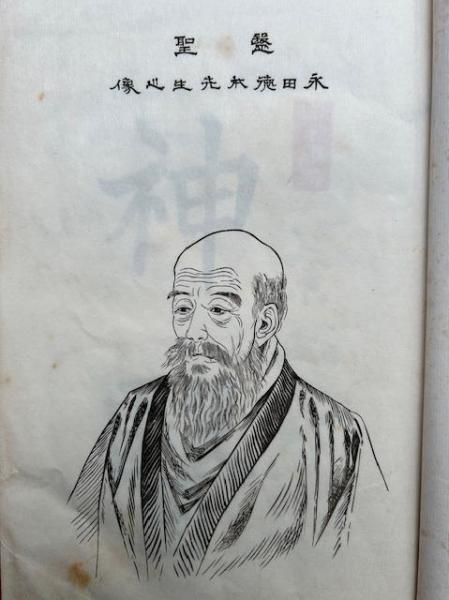 毉聖
永田德本先生之像
神